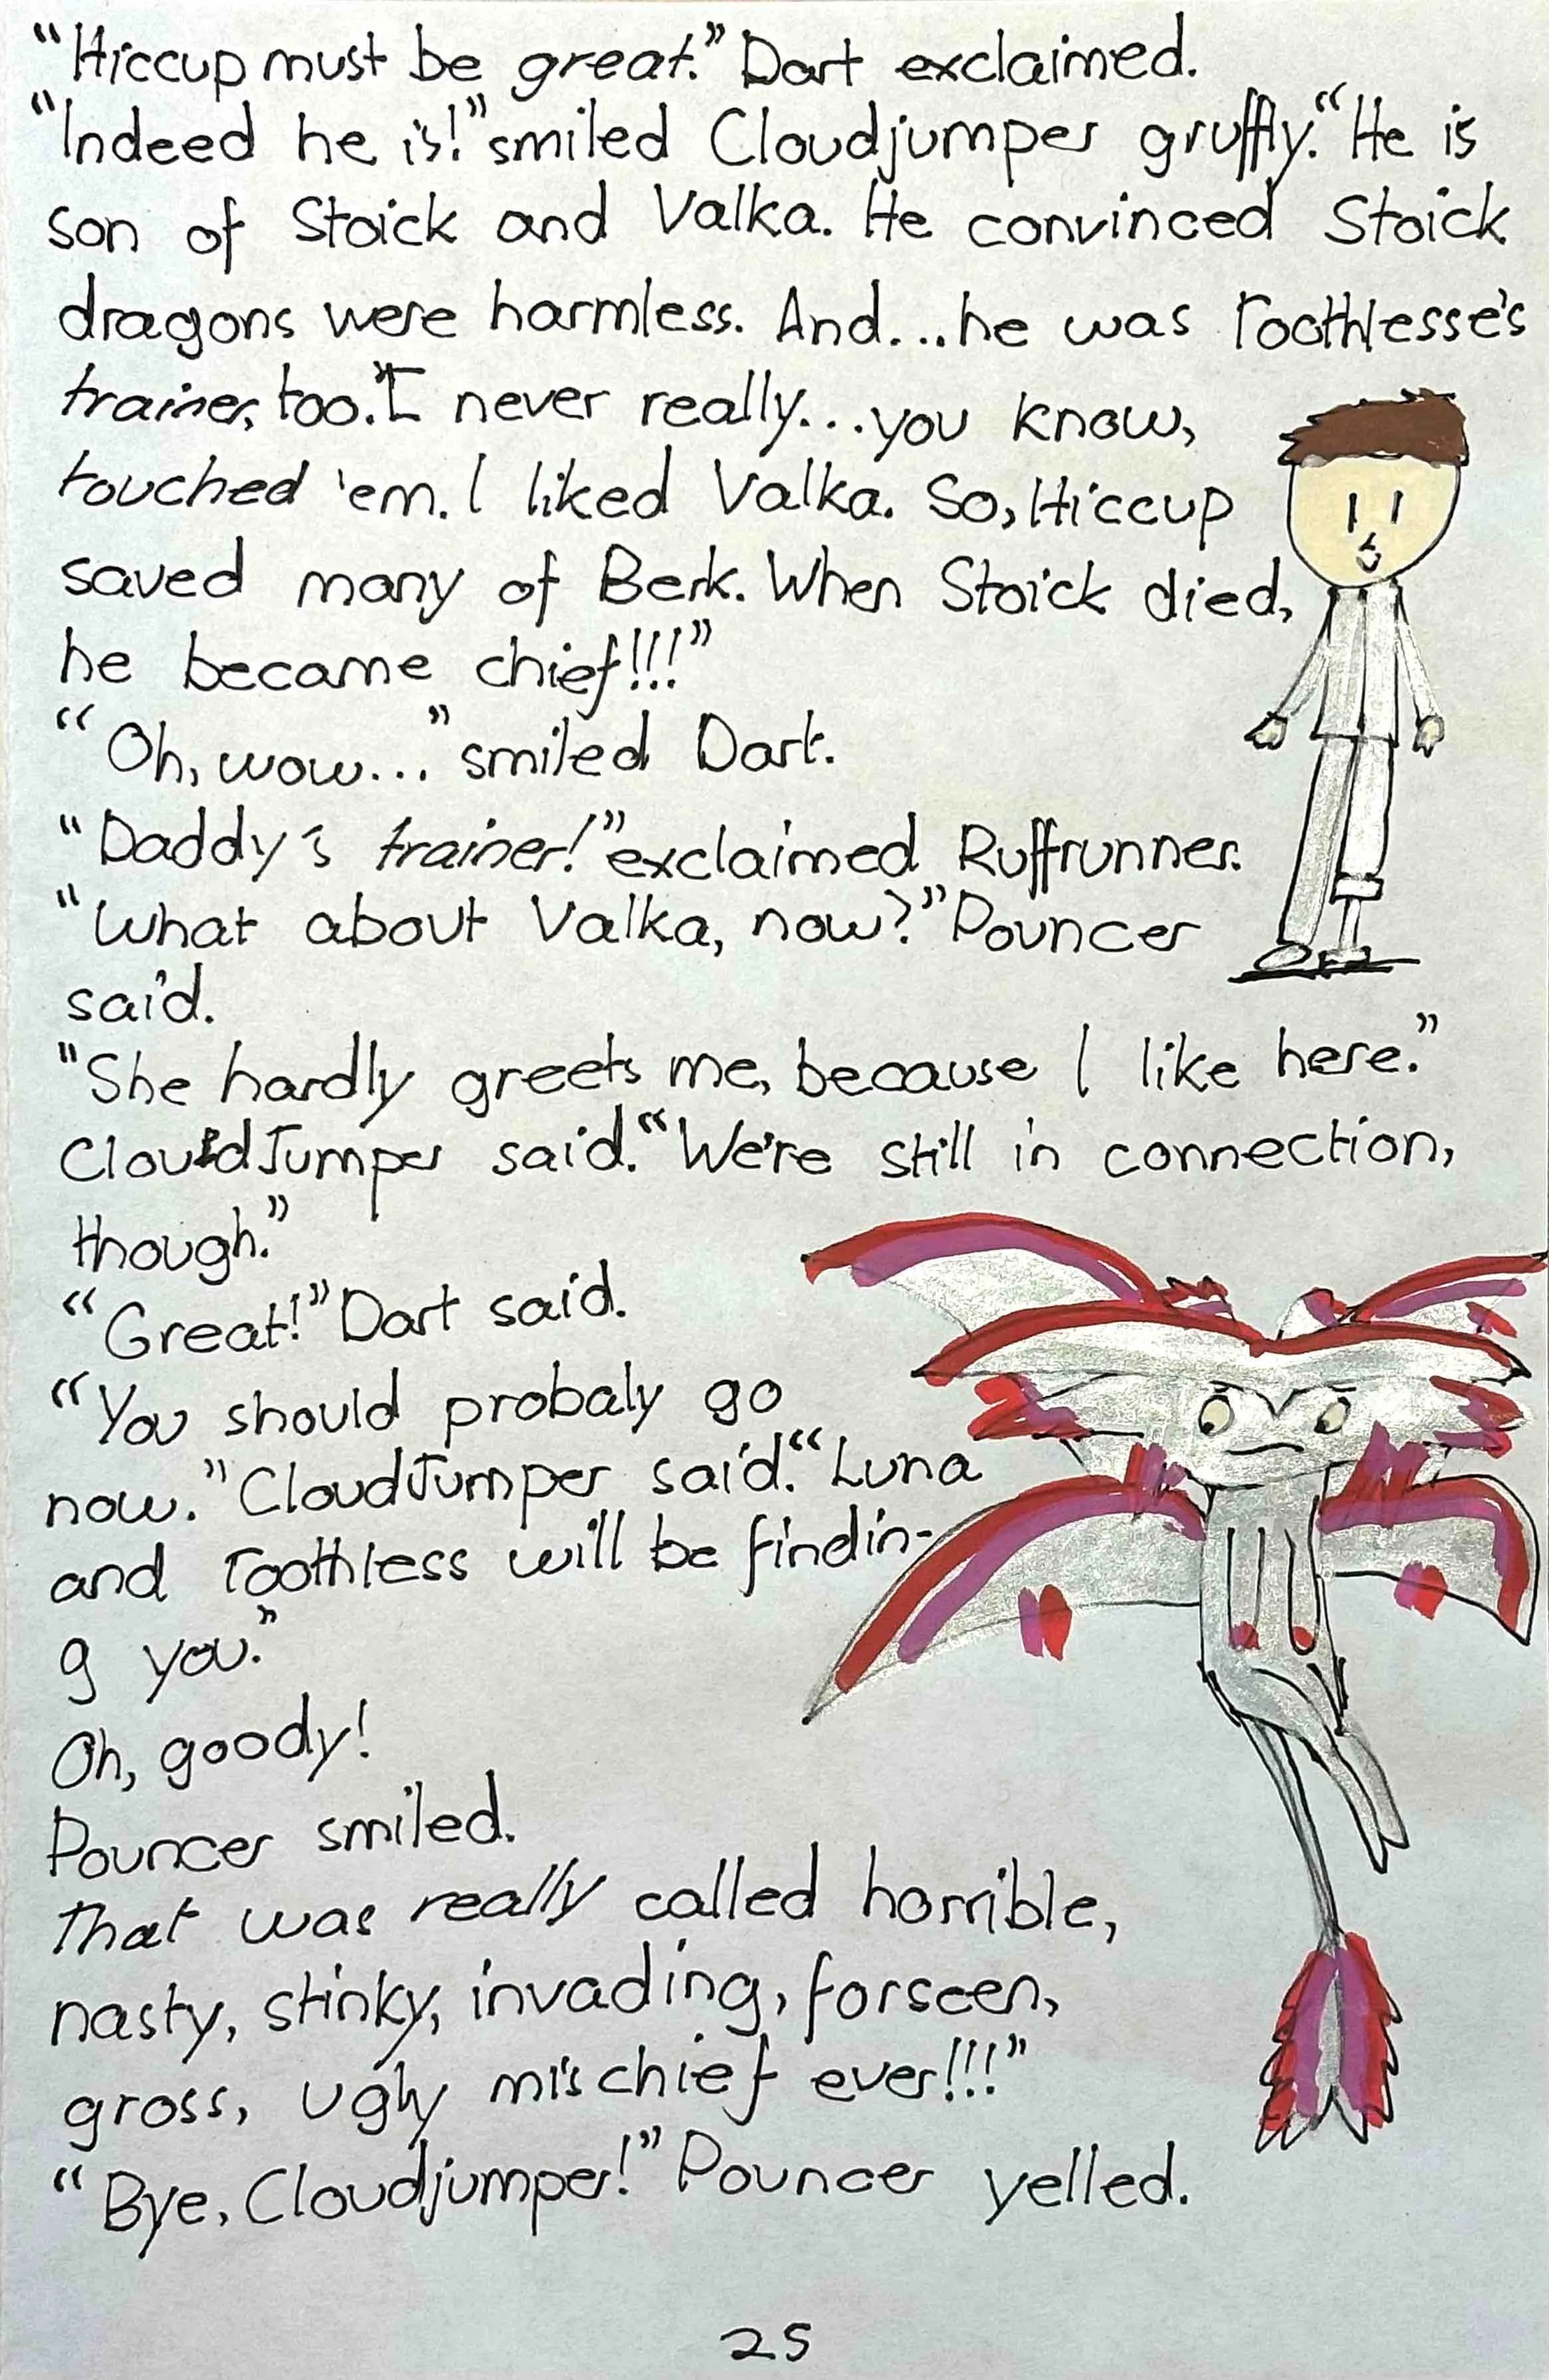 “Hiccup must be great.” Dart exclaimed.
“Indeed he is!” smiled Cloudjumper gruffly. “He is
son of Stoick and Valka. He convinced Stoick
dragons were harmless. And...he was Toothlesse's
trainer, too. “I never really...you know,
touched 'em. I liked Valka. So, Hiccup
saved many of Berk. When Stoick died,
he became chief!!!”
“Oh, wow...” smiled Dart.
“Daddy's trainer!” exclaimed Ruffrunner.
“What about Valka, now?” Pouncer
said.
“She hardly greets me, because I like here.”
CloudJumper said. “We're still in connection,
though.”
“Great!” Dart said.
“You should probaly go
now.” CloudJumper said. “Luna
and Toothless will be findin-
g you.”
Oh, goody!
Pouncer smiled.
That was really called horrible,
nasty, stinky, invading, forseen,
gross, ugly mischief ever!!!”
“Bye, Cloudjumper!” Pouncer yelled.
25